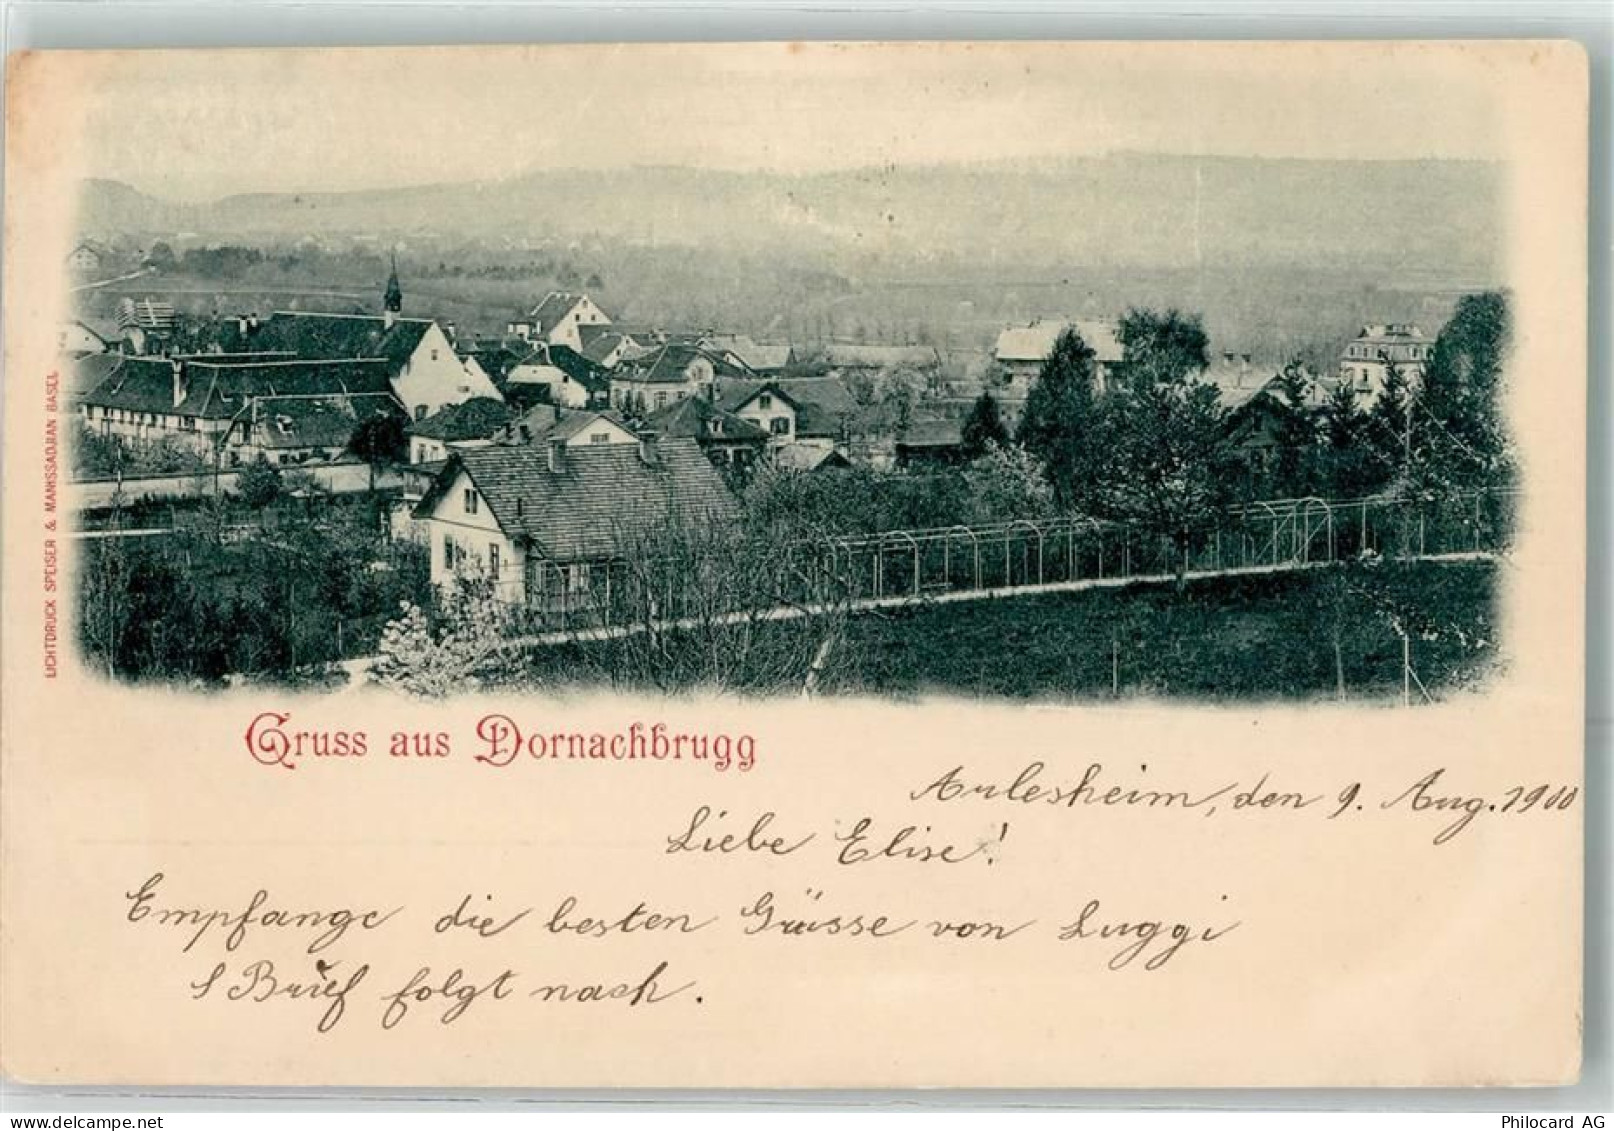 LICHTDRUCK SPEISER & MANISSADJIAN BASEL
Gruss aus Dornachbrugg
Arlesheim, den 9. Aug. 1900
Liebe Elise!
Empfange die besten Grüsse von Luggi
s Brief folgt nach.
53219302
Philocard AG